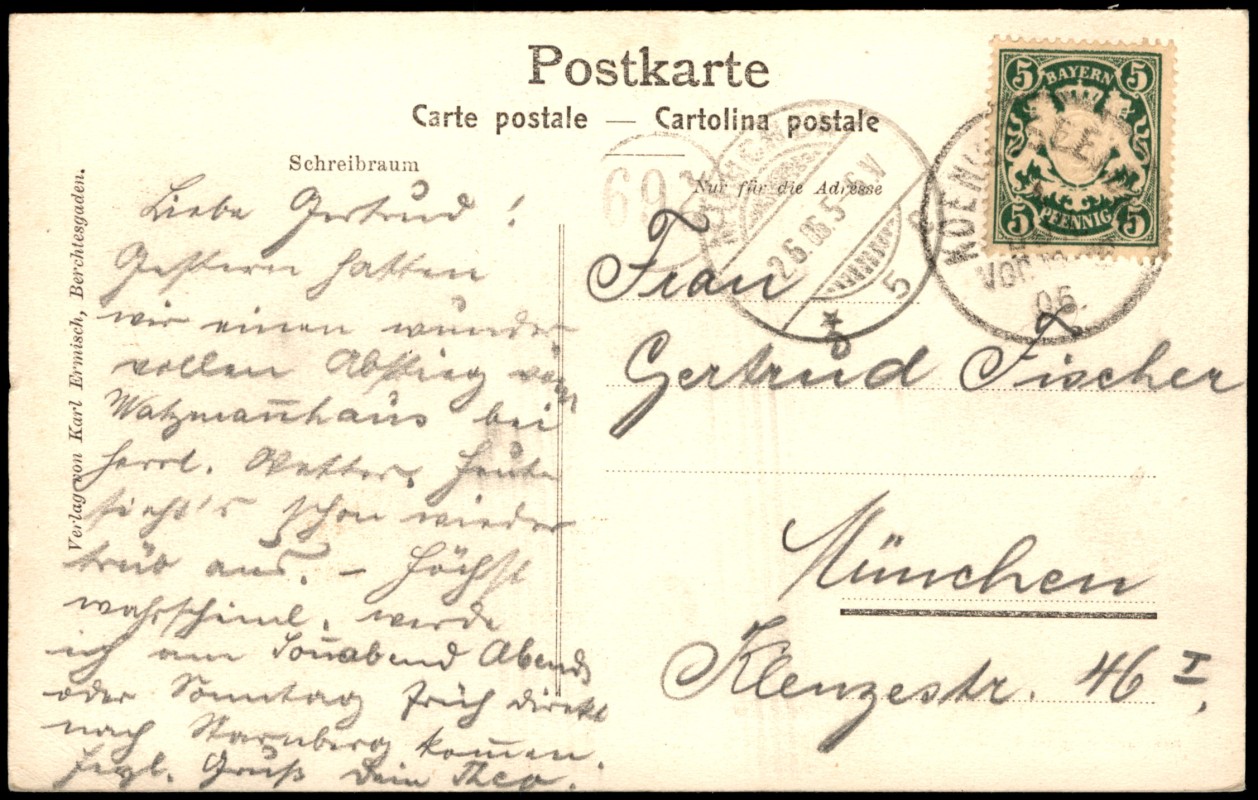 Postkarte
Carte postale — Cartolina postale
Schreibraum
Nur für die Adresse
Verlag von Karl Ermisch, Berchtesgaden.
5 BAYERN 5
5 PFENNIG 5
692
2.6.06.5-6V
5
VOR
06.
Liebe Gertrud!
Gestern hatten
wir einen wunder
vollen Abstieg vom
Watzmannhaus bei
herrl. Wetter. Heute
sieht's schon wieder
trüb aus. – Höchst
wahrscheinl. werde
ich am Sonnabend Abend
oder Sonntag früh direkt
nach Starnberg kommen.
Hrzl. Gruß Dein Theo.
Frau
Gertrud Fischer
München
Klenzestr. 46 I.